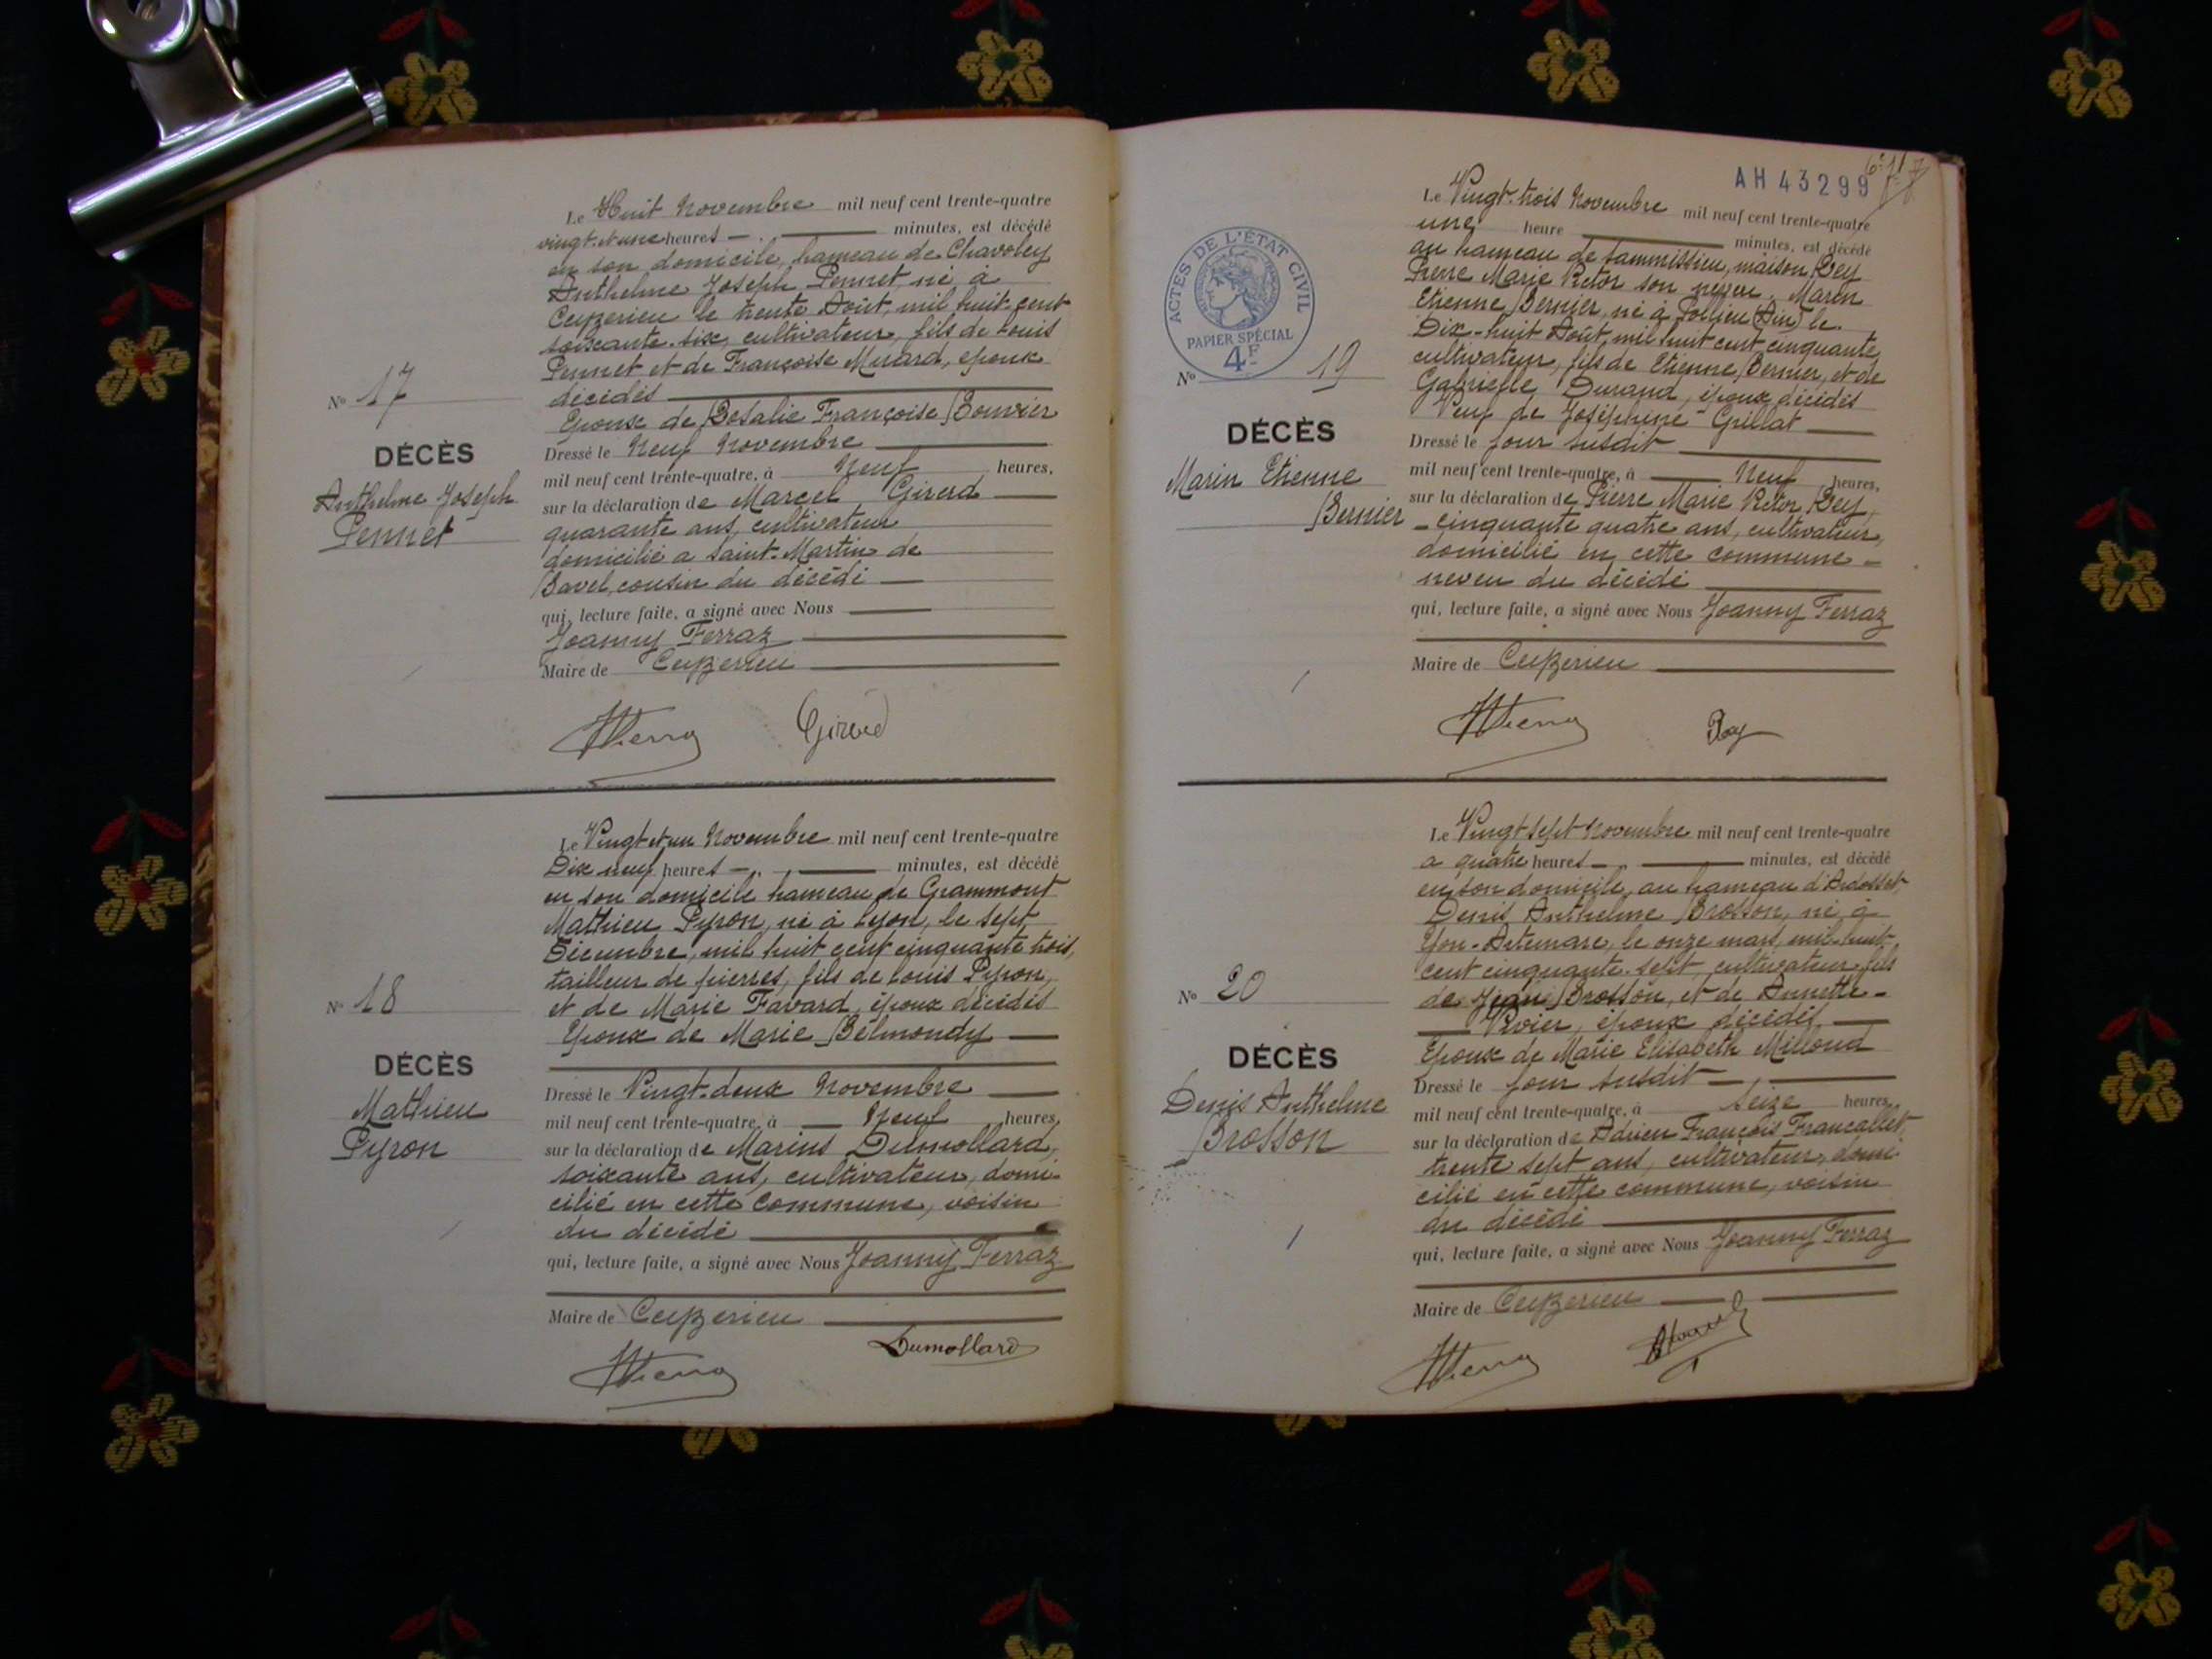 Le Huit Novembre mil neuf cent trente-quatre
vingt et une heures — minutes, est décédé
en son domicile, hameau de Chavoley
Anthelme Joseph Pennet, né à
Ceyzerieu le trente Août, mil huit cent
soixante-six, cultivateur, fils de Louis
Pennet et de Françoise Murard, époux
décédés
Epoux de Rosalie Françoise Bouvier
Nº 17
DÉCÈS
Anthelme Joseph
Pennet
Dressé le Neuf Novembre
mil neuf cent trente-quatre, à Neuf heures,
sur la déclaration de Marcel Girerd
quarante ans, cultivateur
domicilié a Saint-Martin de
Bavel, cousin du décédé
qui, lecture faite, a signé avec Nous
Joanny Ferraz
Maire de Ceyzerieu
Girerd
Le Vingt et un Novembre mil neuf cent trente-quatre
Dix neuf heures — minutes, est décédé
en son domicile hameau de Grammont
Mathieu Pyron, né à Lyon, le sept
Décembre, mil huit cent cinquante trois,
tailleur de pierres, fils de Louis Pyron,
et de Marie Favard, époux décédés
Epoux de Marie Belmondy
Nº 18
DÉCÈS
Mathieu
Pyron
Dressé le Vingt-deux Novembre
mil neuf cent trente-quatre, à Neuf heures,
sur la déclaration de Marius Dumollard,
soixante ans, cultivateur, domi-
cilié en cette commune, voisin
du décédé
qui, lecture faite, a signé avec Nous Joanny Ferraz
Maire de Ceyzerieu
Dumollard
AH 43299
Le Vingt-trois Novembre mil neuf cent trente-quatre
une heure — minutes, est décédé
au hameau de Lammissieu, maison Rey
Pierre Marie Victor son neveu, Marin
Etienne Bernier, né à Pollieu (Ain) le
Dix-huit Août, mil huit cent cinquante,
cultivateur, fils de Etienne Bernier, et de
Gabrielle Durand, époux décédés
Veuf de Joséphine Grillat
ACTES DE L'ÉTAT CIVIL
PAPIER SPÉCIAL
4F
Nº 19
DÉCÈS
Marin Etienne
Bernier
Dressé le jour susdit
mil neuf cent trente-quatre, à Neuf heures,
sur la déclaration de Pierre Marie Victor Rey,
cinquante quatre ans, cultivateur,
domicilié en cette commune -
neveu du décédé
qui, lecture faite, a signé avec Nous Joanny Ferraz
Maire de Ceyzerieu
Rey
Le Vingt sept Novembre mil neuf cent trente-quatre
a quatre heures — minutes, est décédé
en son domicile, au hameau d'Ardosset,
Denis Anthelme Brosson, né à
Yon-Artemare, le onze mars, mil huit
cent cinquante-sept, cultivateur, fils
de Jean Brosson, et de Annette -
Vivier, époux décédés,
Epoux de Marie Elisabeth Milloud
Nº 20
DÉCÈS
Denis Anthelme
Brosson
Dressé le jour susdit
mil neuf cent trente-quatre, à seize heures,
sur la déclaration de Adrien François Francallet,
trente sept ans, cultivateur, domi-
cilié en cette commune, voisin
du décédé
qui, lecture faite, a signé avec Nous Joanny Ferraz
Maire de Ceyzerieu